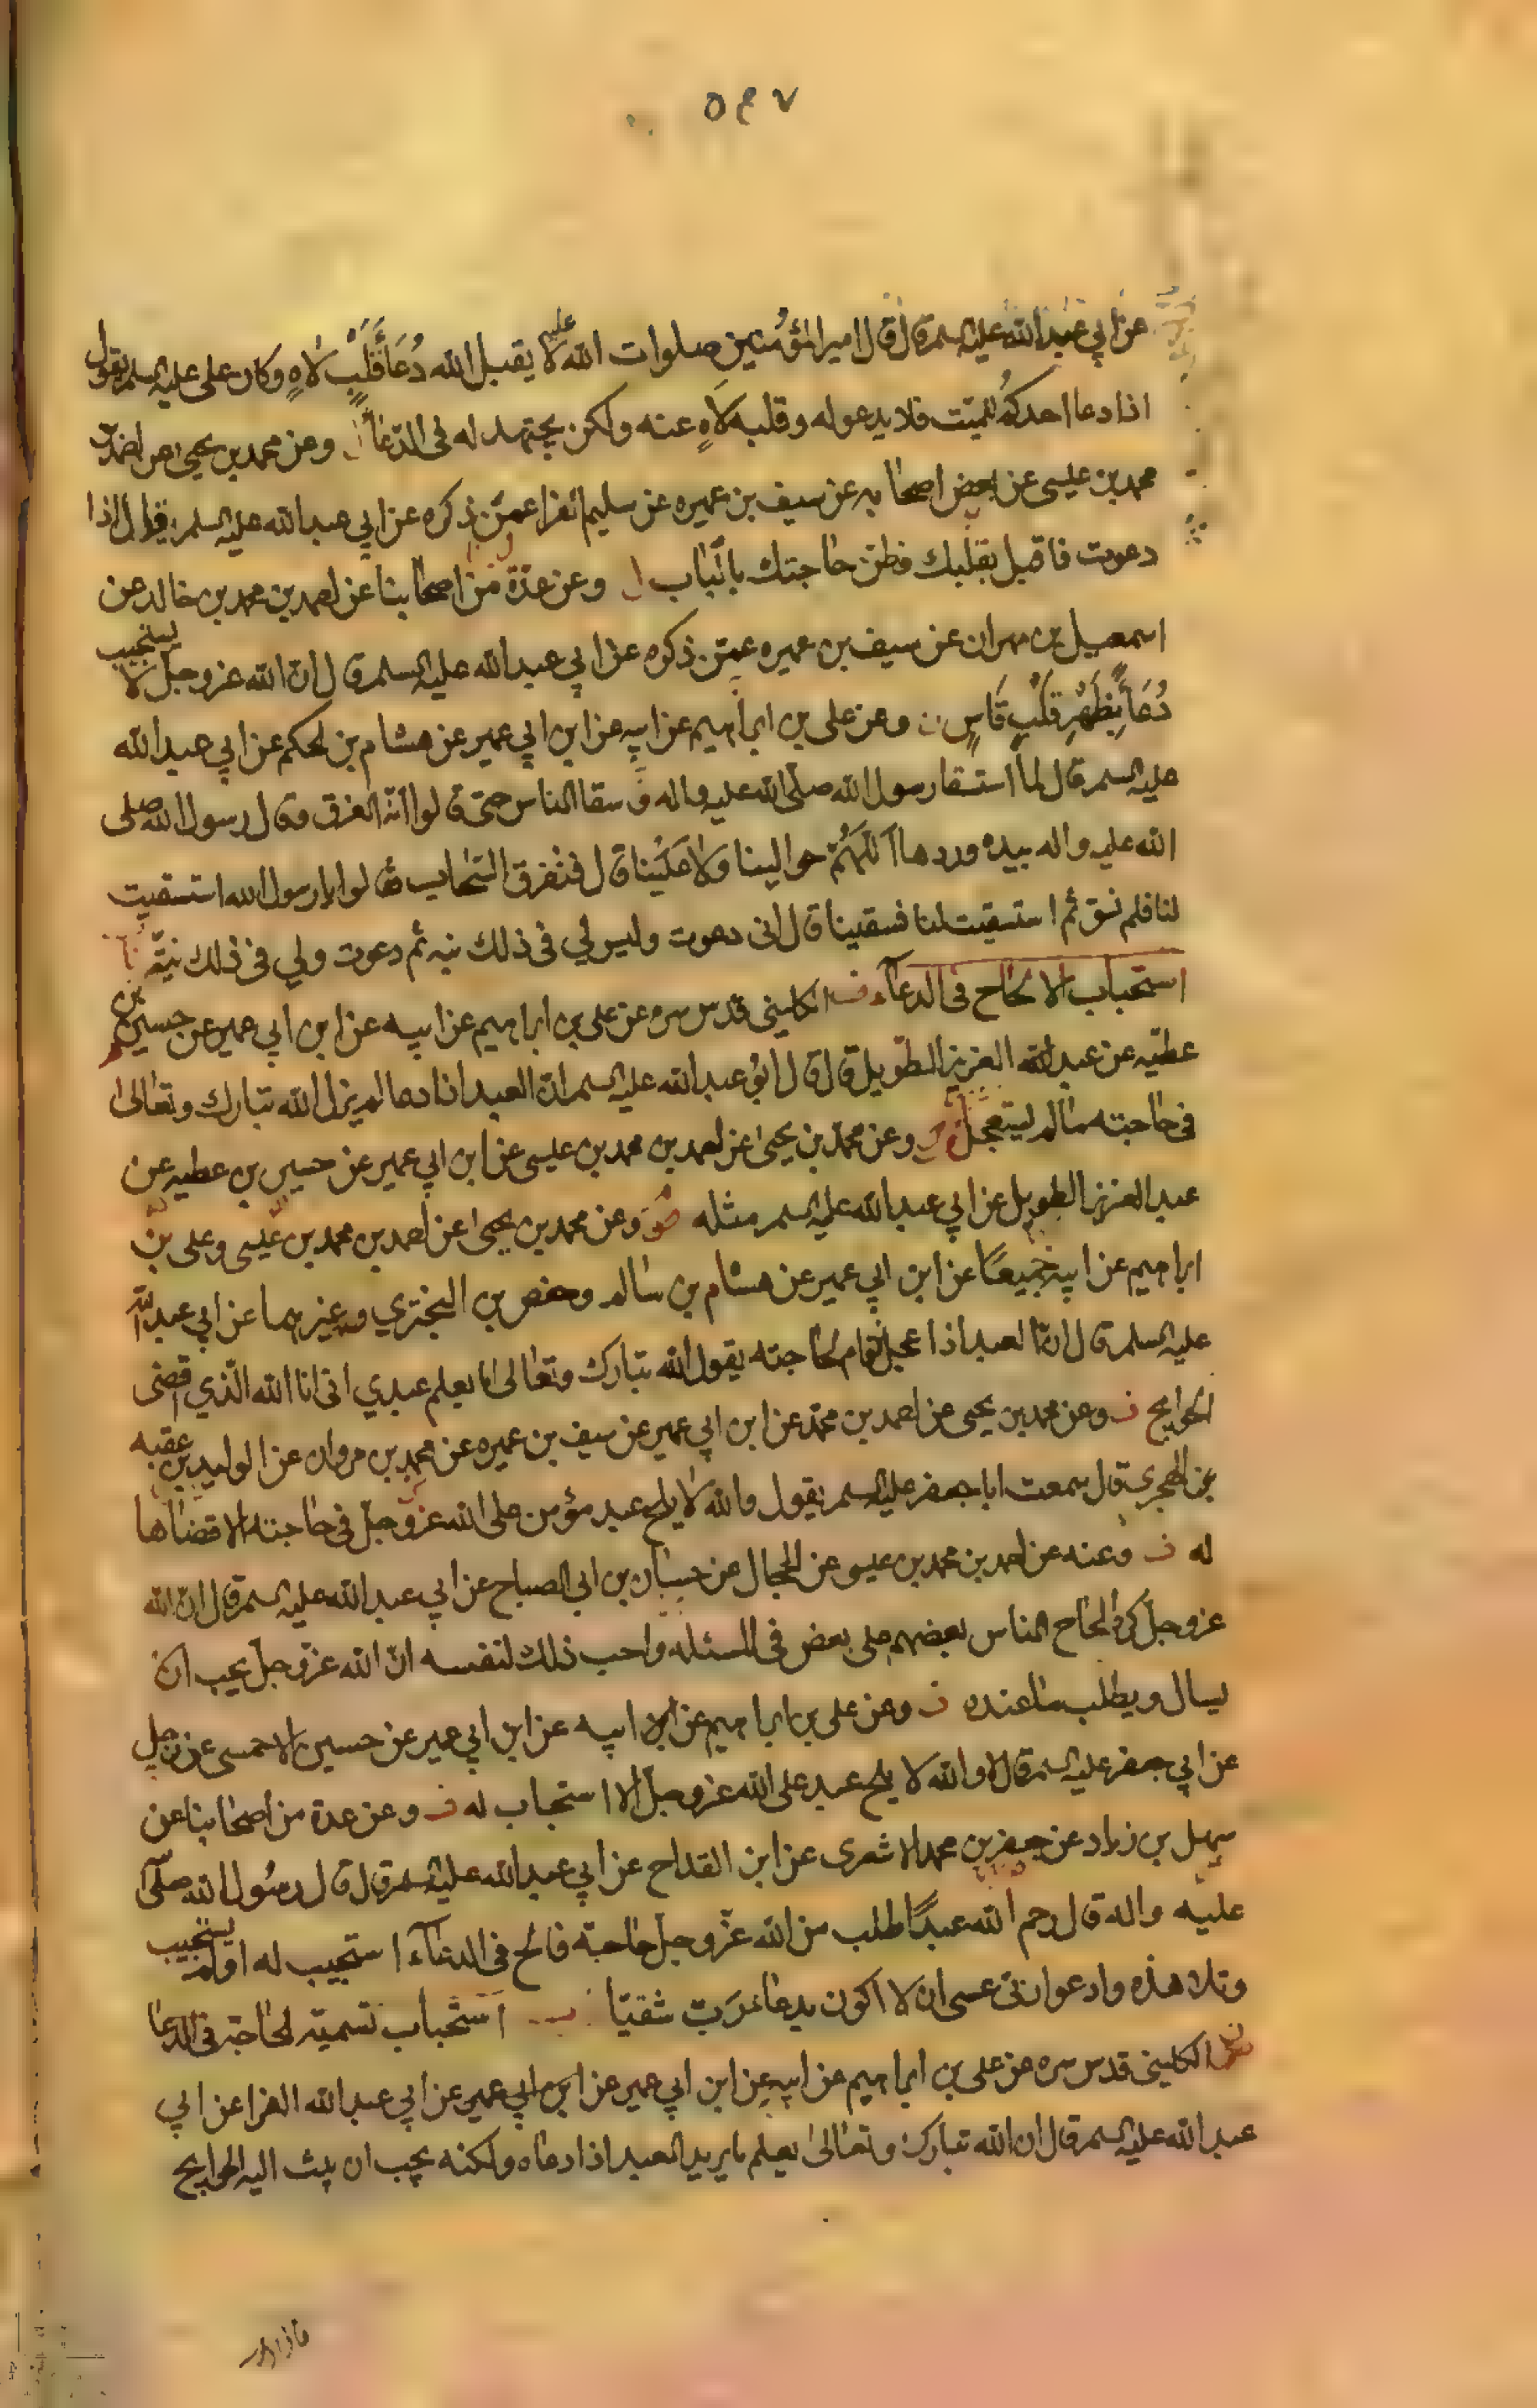 ٥٤٧
عن ابي عبدالله عليه السلم قال قال امير المؤمنين صلوات الله عليه لا يقبل الله دُعَاءَ قَلْبٍ لَاهٍ وكان علي عليه السلم يقول
اذا دعا احدكم للميّت فلا يدعو له وقلبه لَاهٍ عنه ولكن يجتهد له في الدّعا وعن محمد بن يحيى عن احمد بن
محمد بن عيسى عن بعض اصحابه عن سيف بن عميره عن سليم الفرا عمّن ذكره عن ابي عبدالله عليه السلم قال اذا
دعوت فاقبل بقلبك فظن حاجتك بالباب وعن عدّة من اصحابنا عن احمد بن محمد بن خالد عن
اسمعيل بن مهران عن سيف بن عميره عمّن ذكره عن ابي عبدالله عليه السلم قال ان الله عز وجل لا يستجيب
دُعَاءً بِظَهْرِ قَلْبٍ قَاسٍ وعن علي بن ابراهيم عن ابيه عن ابن ابي عمير عن هشام بن الحكم عن ابي عبدالله
عليه السلم قال لما استسقا رسول الله صلّى الله عليه واله وسقا الناس حتى قالوا انّه الغرق وقال رسول الله صلى
الله عليه واله بيده وردها اَللّهُمَّ حوالينا وَلا عَلَيْنا قال فتفرق السّحاب فقالوا يا رسول الله استسقيت
لنا فلم نسق ثم استسقيت لنا فسقينا قال اني دعوت وليس لي في ذلك نيه ثم دعوت ولي في ذلك نيّة
استحباب الالحاح في الدعاء الكليني قدس سره عن علي بن ابراهيم عن ابيه عن ابن ابي عمير عن حسين بن
عطيّه عن عبد العزيز الطّويل قال قال ابو عبدالله عليه السلم ان العبد اذا دعا لم يزل الله تبارك وتعالى
في حاجته ما لم يستعجل وعن محمّد بن يحيى عن احمد بن محمد بن عيسى عن ابن ابي عمير عن حسين بن عطيه عن
عبد العزيز الطويل عن ابي عبدالله عليه السلم مثله وعن محمد بن يحيى عن احمد بن محمد بن عيسى وعلي بن
ابراهيم عن ابيه جميعًا عن ابن ابي عمير عن هشام بن سالم وحفص بن البختري وغيرهما عن ابي عبدالله
عليه السلم قال انّ العبد اذا عجل فقام لحاجته يقول الله تبارك وتعالى اما يعلم عبدي اني انا الله الّذي اقضى
الحوايج وعن محمد بن يحيى عن احمد بن محمّد عن ابن ابي عمير عن سيف بن عميره عن محمد بن مروان عن الوليد بن عقبه
عن الهجري قال سمعت ابا جعفر عليه السلم يقول والله لا يلح عبد مؤمن على الله عز وجل في حاجته الا قضاها
له وعنه عن احمد بن محمد بن عيسى عن الحجال عن حسان بن ابي الصباح عن ابي عبدالله عليه السلم قال ان الله
عز وجل كره الحاح الناس بعضهم على بعض في المسئله واحب ذلك لنفسه ان الله عز وجل يحب ان
يسال ويطلب ما عنده وعن علي بن ابراهيم عن ابيه عن ابن ابي عمير عن حسين الاحمسي عن رجل
عن ابي جعفر عليه السلم قال لا والله لا يلح عبد على الله عز وجل الا استجاب له وعن عدة من اصحابنا عن
سهل بن زياد عن جعفر بن محمد الاشعري عن ابن القداح عن ابي عبدالله عليه السلم قال قال رسول الله صلّى
عليه واله قال رحم الله عبدًا طلب من الله عزّ وجل حاجة فالح في الدعاء استجيب له او لم يستجيب
وتلا هذه وادعوا ربّي عسى ان لا اكون بدعاء رَبّي شقيّا استحباب تسميّة الحاجة في الدعا
الكليني قدس سره عن علي بن ابراهيم عن ابيه عن ابن ابي عمير عن ابن ابي عمير عن ابي عبدالله الفرا عن ابي
عبدالله عليه السلم قال ان الله تبارك وتعالى يعلم ما يريد العبد اذا دعاه ولكنه يحب ان يبث اليه الحوايج